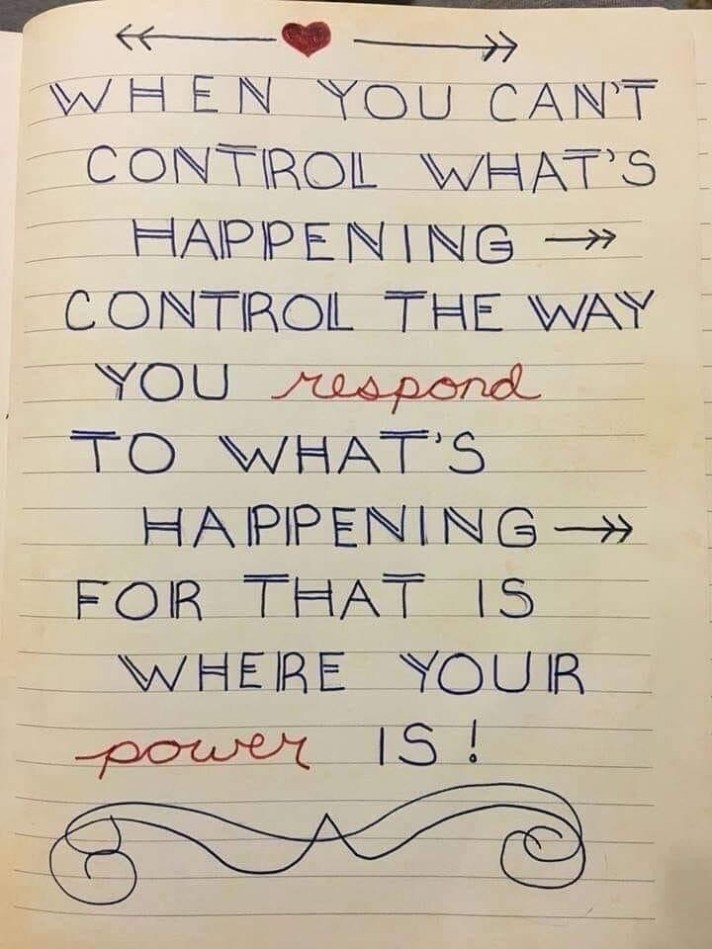 WHEN YOU CAN'T
CONTROL WHAT'S
HAPPENING
CONTROL THE WAY
YOU respond
TO WHAT'S
HAPPENING
FOR THAT IS
WHERE YOUR
power IS!